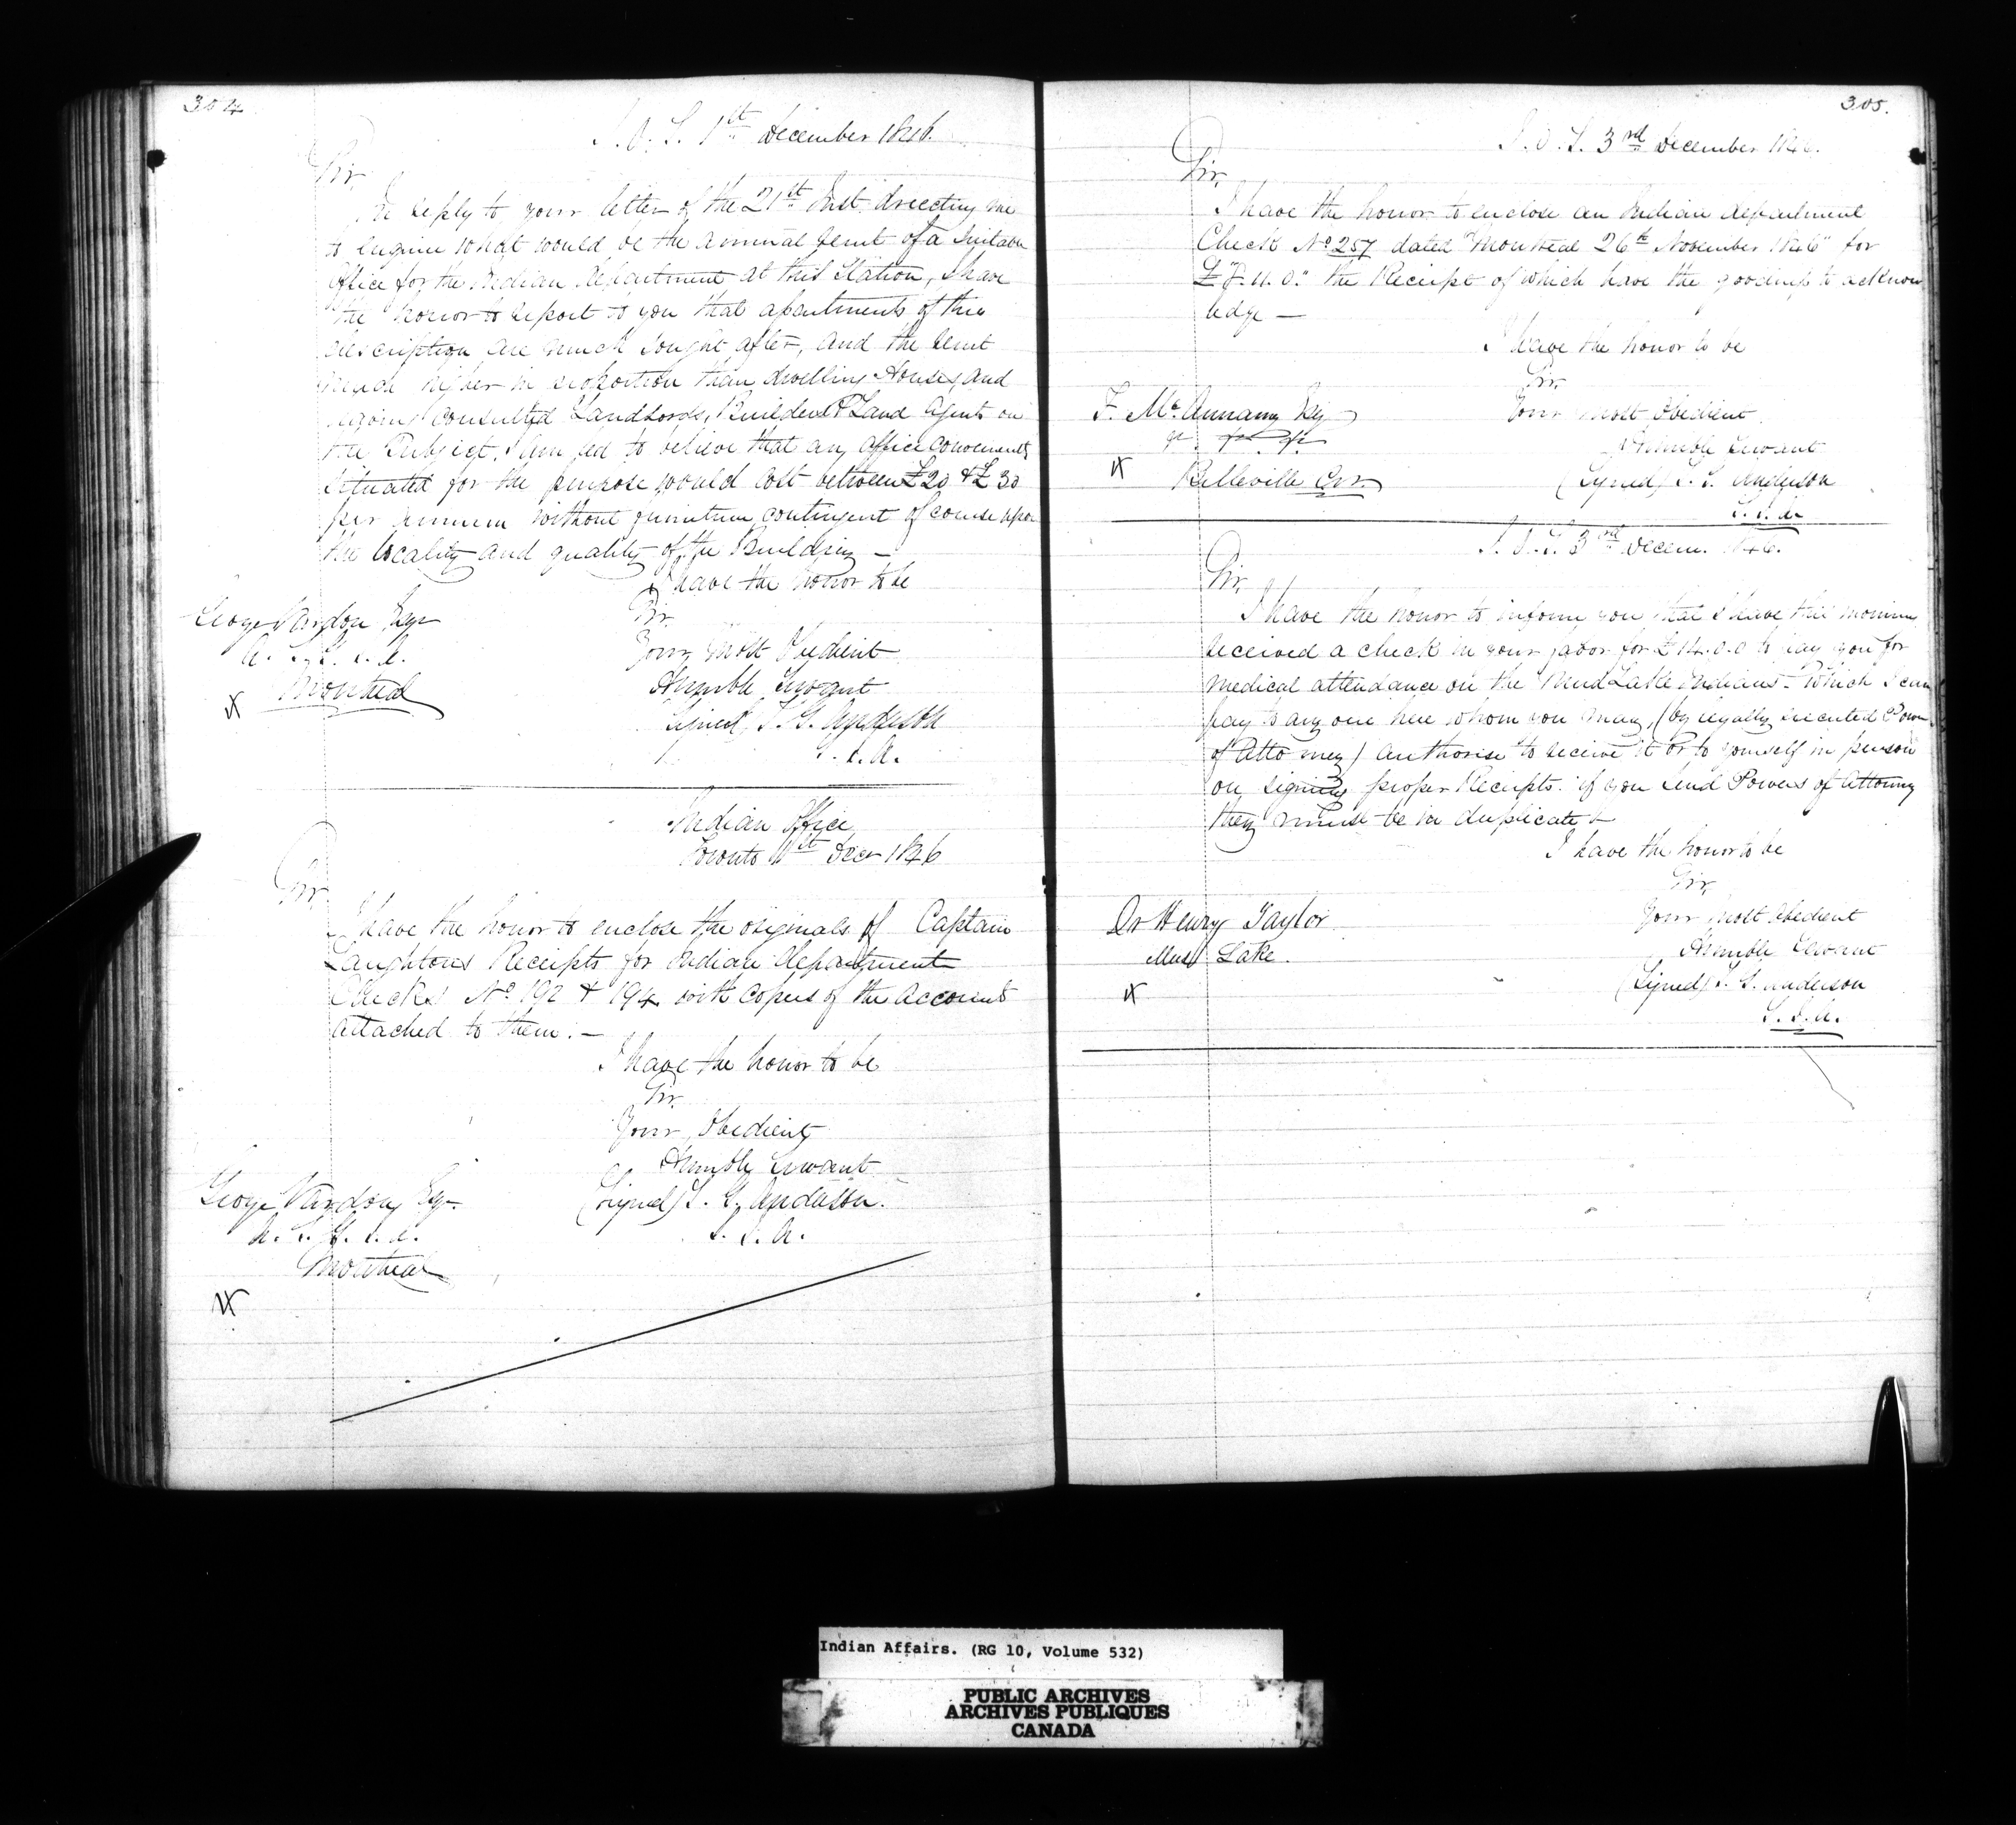 304
I. O. T. 1st December 1846.
Sir,
In reply to your letter of the 21st Inst. directing me
to enquire what would be the annual rent of a suitable
office for the Indian Department at this Station, I have
the honor to report to you that apartments of this
description are much sought after, and the rent
much higher in proportion than dwelling Houses, and
having consulted Landlords, Builders & Land Agents on
the Subject, I am led to believe that an office conveniently
situated for the purpose would cost between £20 & £30
per annum without furniture, contingent of course upon
the locality and quality of the Building —
I have the honor to be
Sir
Your Most Obedient
Humble Servant
Signed, T. G. Anderson
S. I. A.
George Vardon Esqr
A. S. G. I. A.
Montreal
Indian Office
Toronto 1st Decr 1846
Sir,
I have the honor to enclose the originals of Captain
Laughtons Receipts for Indian Department
Checks No. 192 & 194 with Copies of the Accounts
attached to them. —
I have the honor to be
Sir
Your Obedient
Humble Servant
(Signed) T. G. Anderson.
S. I. A.
George Vardon Esqr.
A. S. G. I. A.
Montreal
305.
I. O. T. 3rd December 1846.
Sir,
I have the honor to enclose an Indian department
Check No. 257 dated "Montreal 26th November 1846" for
the Receipt of which have the goodness to acknow
ledge —
I have the honor to be
Sir,
Your Most Obedient
Humble Servant
(Signed) T. G. Anderson
S. I. A.
F. McAnnany Esq
Belleville
I. O. T. 3rd Decem. 1846.
Sir,
I have the honor to inform you that I have this morning
received a check in your favor for £14.0.0 to pay you for
Medical attendance on the Mud Lake Indians - Which I can
pay to any one here whom you may, (by legally executed Power
of Attorney) authorise to receive it or to yourself in person
on signing proper Receipts. if you send Powers of Attorney
they must be in duplicate —
I have the honor to be
Sir,
Your Most Obedient
Humble Servant
(Signed) T. G. Anderson
S. I. A.
Dr Henry Taylor
Mud Lake.
Indian Affairs. (RG 10, Volume 532)
PUBLIC ARCHIVES
ARCHIVES PUBLIQUES
CANADA